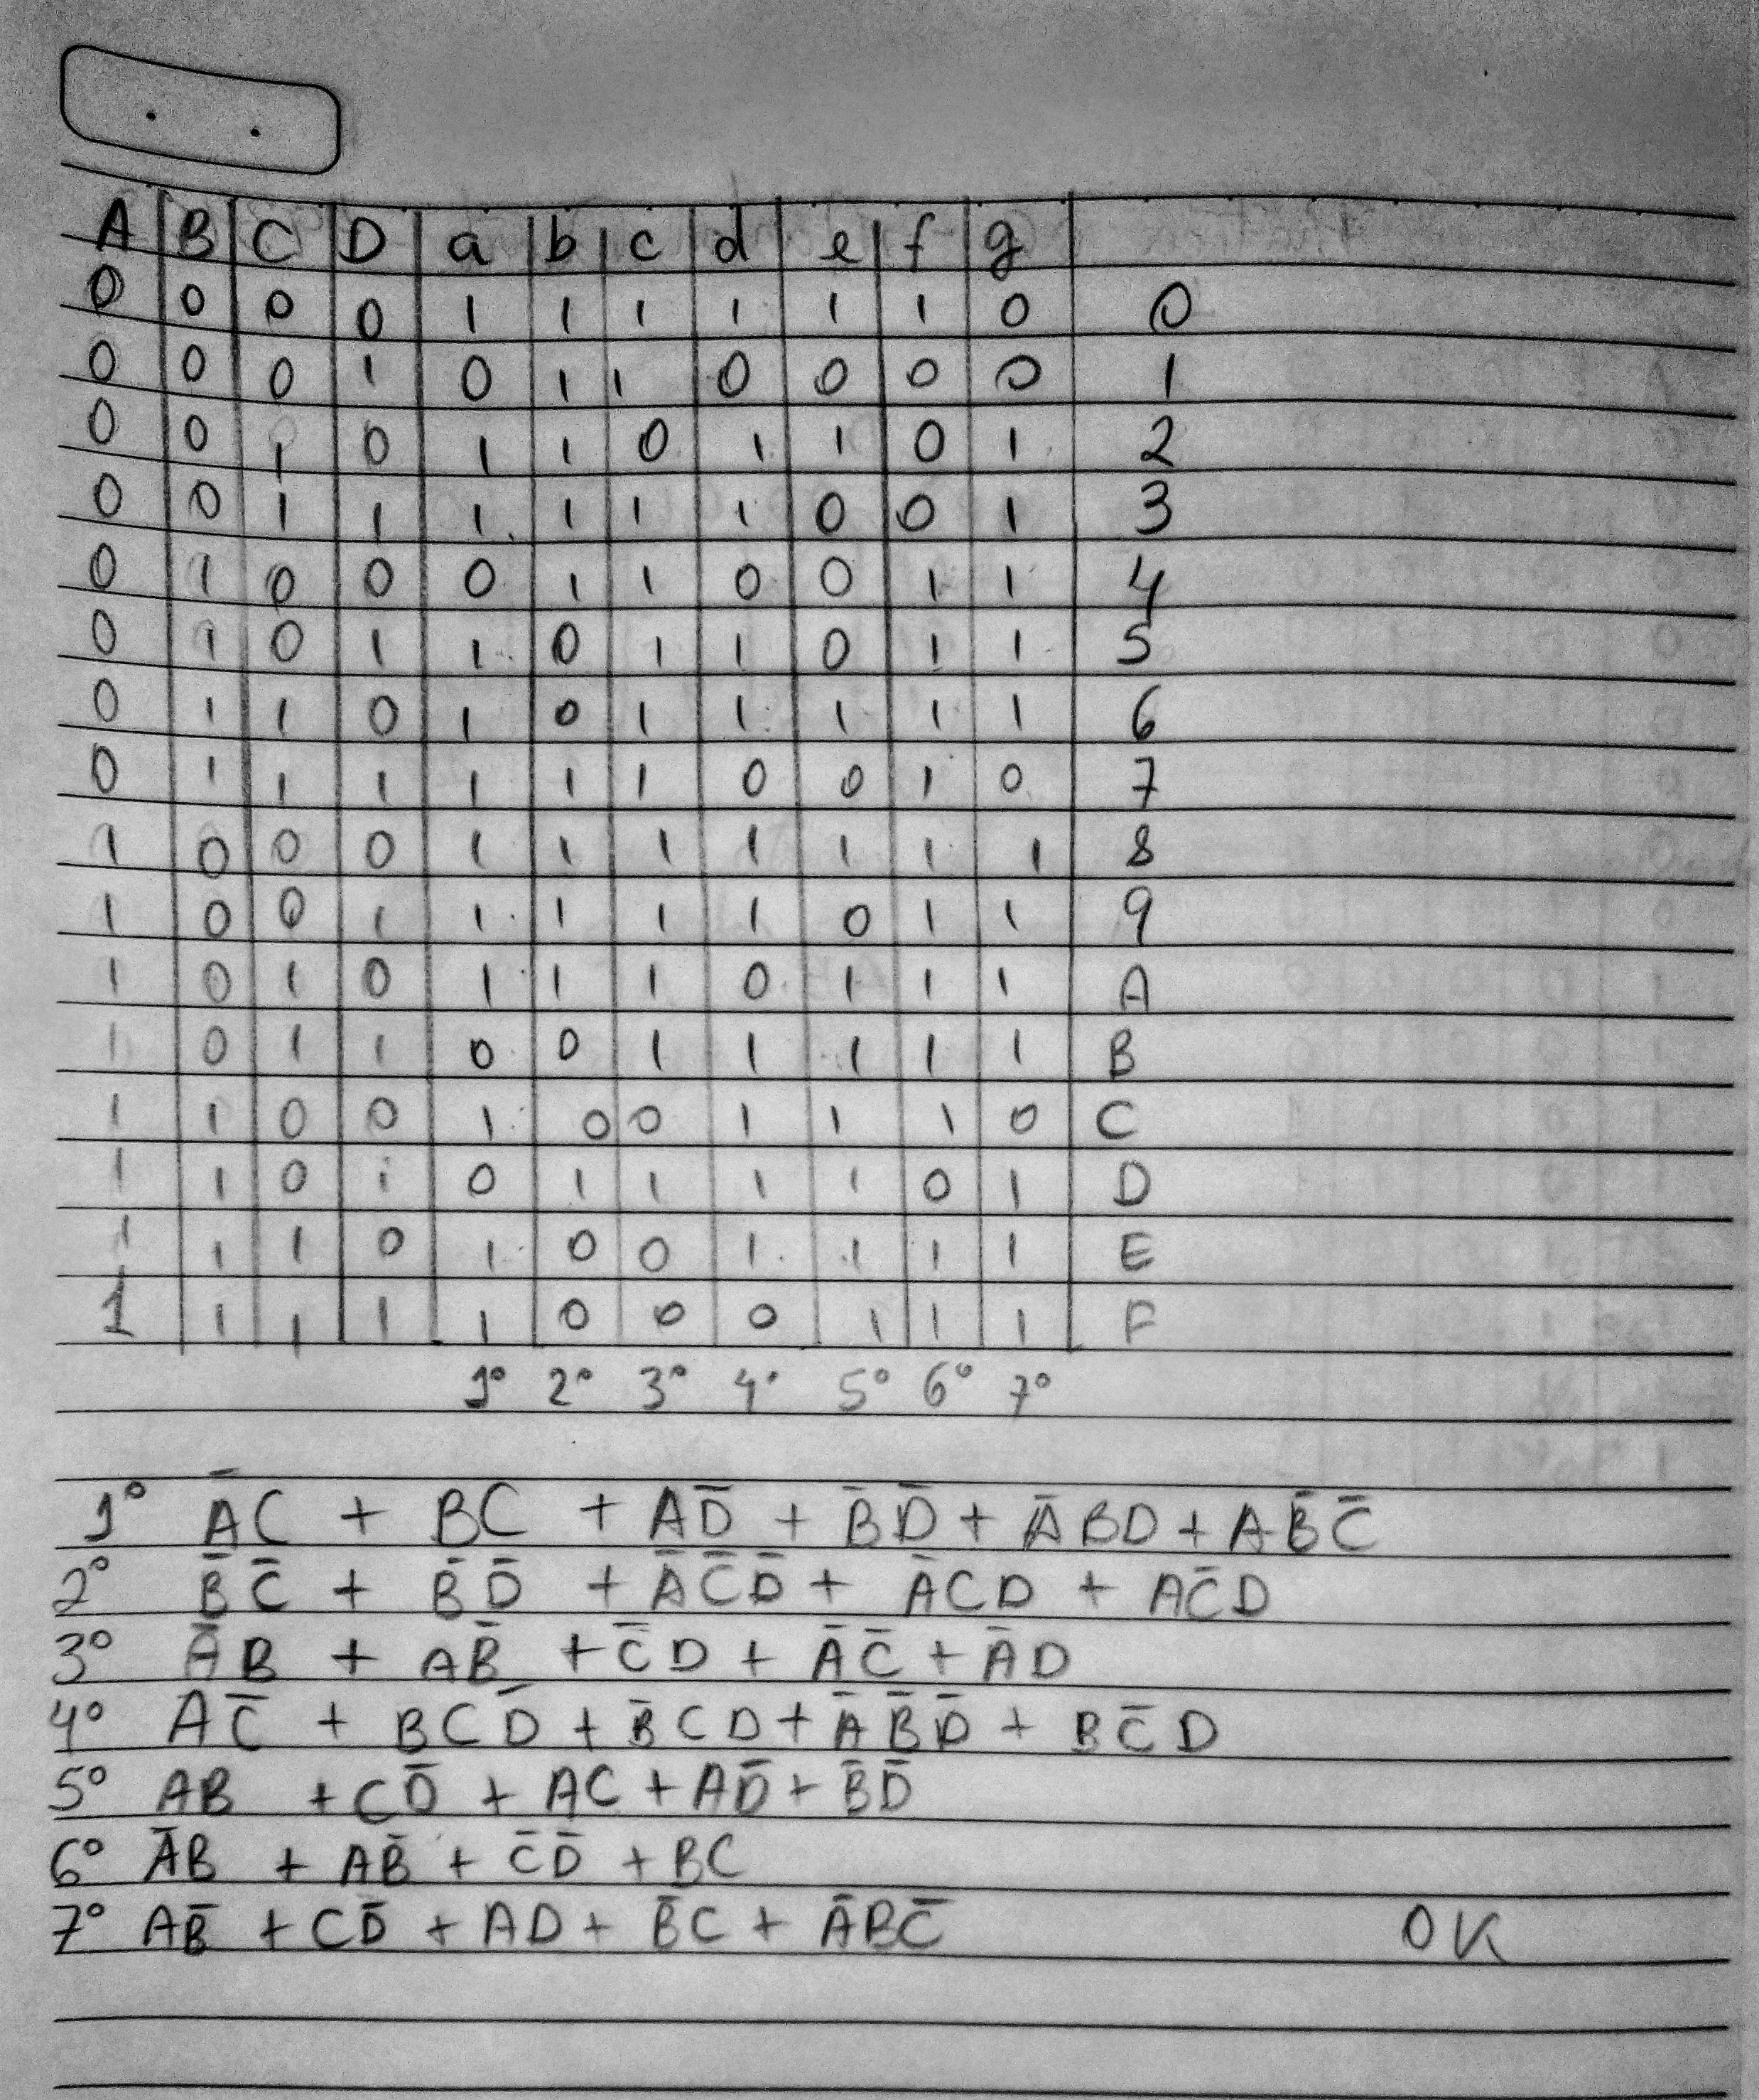 A B C D a b c d e f g
0 0 0 0 1 1 1 1 1 1 0 0
0 0 0 1 0 1 1 0 0 0 0 1
0 0 1 0 1 1 0 1 1 0 1 2
0 0 1 1 1 1 1 1 0 0 1 3
0 1 0 0 0 1 1 0 0 1 1 4
0 1 0 1 1 0 1 1 0 1 1 5
0 1 1 0 1 0 1 1 1 1 1 6
0 1 1 1 1 1 1 0 0 1 0 7
1 0 0 0 1 1 1 1 1 1 1 8
1 0 0 1 1 1 1 1 0 1 1 9
1 0 1 0 1 1 1 0 1 1 1 A
1 0 1 1 0 0 1 1 1 1 1 B
1 1 0 0 1 0 0 1 1 1 0 C
1 1 0 1 0 1 1 1 1 0 1 D
1 1 1 0 1 0 0 1 1 1 1 E
1 1 1 1 1 0 0 0 1 1 1 F
1° 2° 3° 4° 5° 6° 7°
1° A̅C + BC + AD̅ + B̅D̅ + A̅BD + AB̅C̅
2° B̅C̅ + B̅D̅ + A̅C̅D̅ + A̅CD + AC̅D
3° A̅B + AB̅ + C̅D + A̅C̅ + A̅D
4° AC̅ + BCD̅ + B̅CD + A̅B̅D̅ + BC̅D
5° AB + CD̅ + AC + AD̅ + B̅D̅
6° A̅B + AB̅ + C̅D̅ + BC
7° AB̅ + CD̅ + AD + B̅C + A̅BC̅ OK